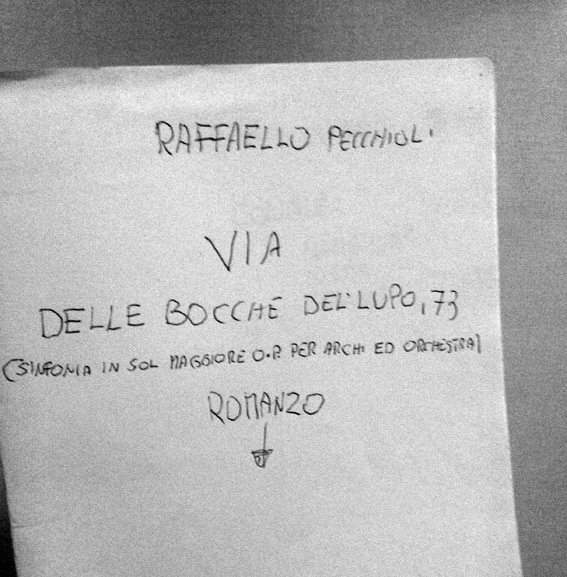 RAFFAELLO PECCHIOLI
VIA
DELLE BOCCHE DEL'LUPO, 73
(SINFONIA IN SOL MAGGIORE O.P. PER ARCHI ED ORCHESTRA)
ROMANZO